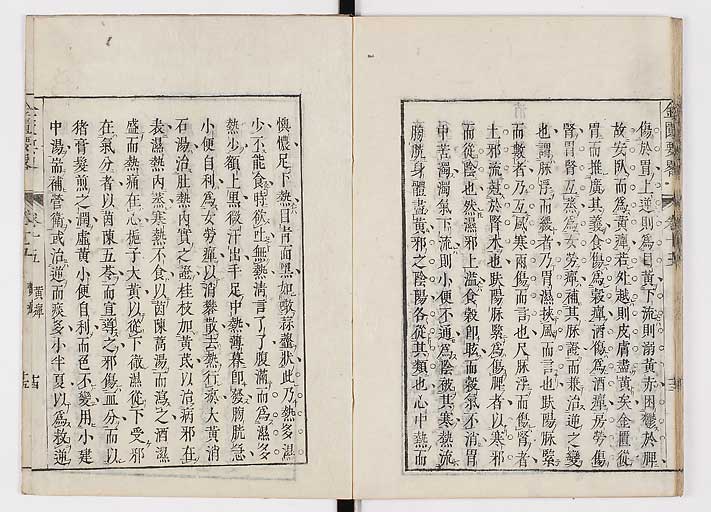 傷於胃上逆則爲目黃下流則溺黃赤困鬱於脾
故安臥而爲黃癉若外越則皮膚盡黃矣金匱從
胃而推廣其義食傷爲穀癉酒傷爲酒癉房勞傷
腎胃腎互蒸爲女勞癉補其脉證而兼治逆之變
也謂脉浮而緩者乃胃濕挾風而言也尺脉浮而傷腎者
而數者乃互風寒兩傷而言也
土邪流於腎水也趺陽脉緊爲傷脾者以寒邪
而從陰也然濕邪上溢食穀卽眩而穀氣不消胃
中苦濁濁氣下流則小便不通爲陰被其寒熱流
膀胱身體盡黃邪之陰陽各從其類也心中熱而
懊憹足下熱目青而黑如噉蒜虀狀此乃熱多濕
少不能食時欲吐無熱淸言了了腹滿而爲濕多
熱少額上黑微汗出手足中熱薄暮卽發膀胱急
小便自利爲女勞癉以消礬散去熱行瘀大黃消
石湯治肚熱內實之證桂枝加黃芪以治病邪在
表濕熱內蒸寒熱不食以茵陳蒿湯而瀉之酒濕
盛而熱痛在心梔子大黃以從下徹濕從下受邪
在氣分者以茵陳五苓而宣導之邪傷血分而以
猪膏髮煎之潤虛黃小便自利而色不變用小建
中湯耑補營衛或治逆而痰多小半夏以爲救逆
金匱要畧
卷十五
黃癉